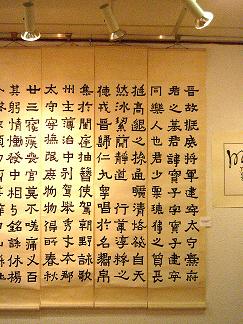 晉故振威將軍建寧太守爨府
君之墓君諱寶子字寶子建寧
同樂人也君少稟瑰偉之質長
挺高邈之操通曠清恪發自天
然冰潔簡靜道兼行葦淳粹之
德戎晉歸仁九皋唱於名響束帛
集於閨庭抽簪俟駕朝野詠歌
州主薄治中別駕舉秀才本郡
太守寧撫氓庶物物得所春秋
廿三寢疾喪官莫不嗟痛人百
其躬情慟發中相与銘誄休揚